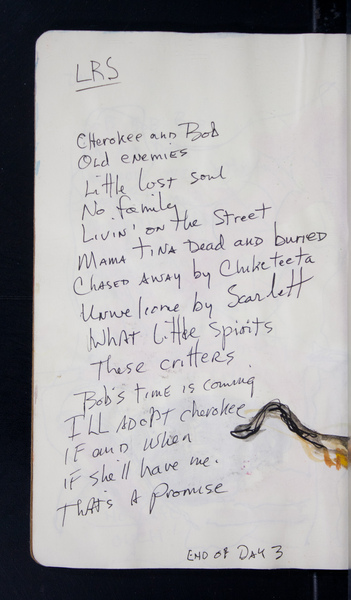 LRS
Cherokee and Bob
Old enemies
Little lost soul
No family
Livin' on the Street
Mama Tina Dead and buried
Chased away by Chuketeeta
Unwelcome by Scarlett
What little spirits
These critters
Bob's time is coming
I'll adopt cherokee
If and when
If she'll have me.
That's a promise
End of Day 3